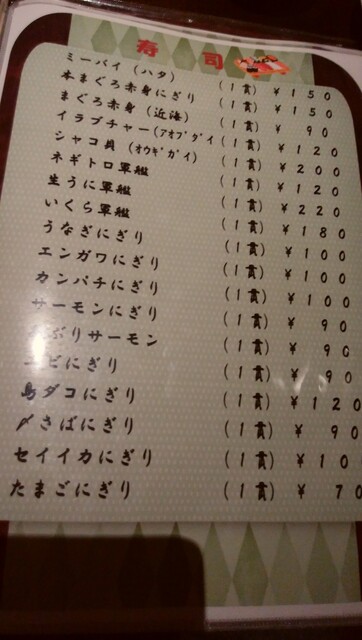 寿司
ミーバイ (ハタ) (1貫) ¥150
本まぐろ赤身にぎり (1貫) ¥150
まぐろ赤身 (近海) (1貫) ¥90
イラブチャー(アオブダイ) (1貫) ¥120
シャコ貝 (オウギガイ) (1貫) ¥200
ネギトロ軍艦 (1貫) ¥120
生うに軍艦 (1貫) ¥220
いくら軍艦 (1貫) ¥180
うなぎにぎり (1貫) ¥100
エンガワにぎり (1貫) ¥100
カンパチにぎり (1貫) ¥100
サーモンにぎり (1貫) ¥90
ぶりサーモン (1貫) ¥90
エビにぎり (1貫) ¥90
島ダコにぎり (1貫) ¥120
〆さばにぎり (1貫) ¥90
セイイカにぎり (1貫) ¥10
たまごにぎり (1貫) ¥70